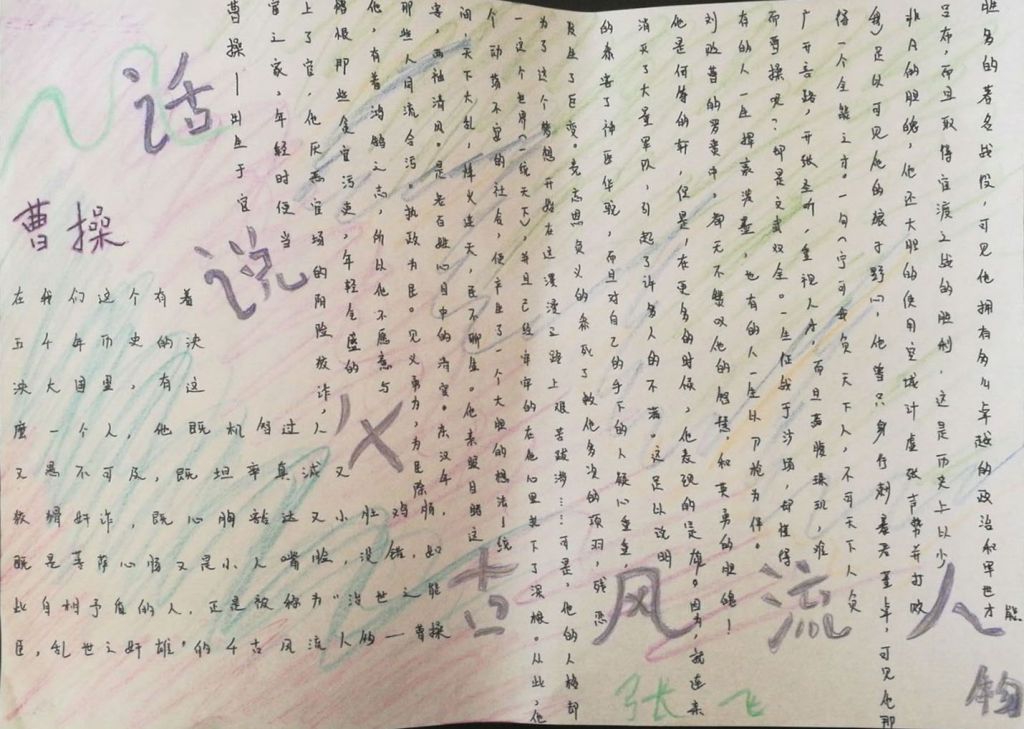 话说
曹操
千古风流人
在我们这个有着
五千年历史的泱
泱大国里，有这
麽一个人，他既机智过人
又愚不可及，既坦率真诚又
狡猾奸诈，既心胸豁达又小肚鸡肠，
既是菩萨心肠又是小人嘴脸，没错，如
此自相予盾的人，正是被称为"治世之能
臣，乱世之奸雄"的千古风流人的—曹操
曹操—出生于官
官之家，年轻时便当
上了官，他厌恶官场的阴险狡诈，
憎恨那些贪官污吏，年轻全盛的
他，有着鸿鹄之志，所以他不愿意与
那些人同流合污。执政为民。见义勇为，为民除
害，两袖清风。是老百姓心目中的清官。东汉年
间，天下大乱，烽火连天，民不聊生。他亲眼目睹这
个动荡不定的社会，便产生了一个大胆的想法！统
一这个世界（一统天下），并且已经牢牢的在他心里扎下了深根。从此，他
为了这个梦想开始在这漫漫之路上艰苦跋涉……可是，他的人格却
发生了巨变。竟忘恩负义的杀死了救他多次的项羽，残忍
的杀害了神医华驼，而且对自己的手下的人疑心重重，
消灭了大量军队，引起了许多人的不满。这足以说明
他是何等的奸，但是，在更多的时候，他表现的是雄。因为，就连亲
刘贬曹的罗贯中，都无不赞叹他的智慧和英勇的胆魄！
有的人一生挥豪泼墨，也有的人一生以刀枪为伴。
而曹操呢？却是文武双全。一生征战于沙场，却懂得
广开言路，开张圣听，重视人才，而且善辨珠玑，难
得一个全能之才。一句（宁可我负天下人，不可天下人负
我）足以可见他的狼子野心，他曾只身行刺暴君董卓，可见他那
非凡的胆魄，他还大胆的使用空城计虚张声势并打败
吕布，而且取得官渡之战的胜利，这是历史上以少
胜多的著名战役，可见他拥有多么卓越的政治和军世才能
张飞